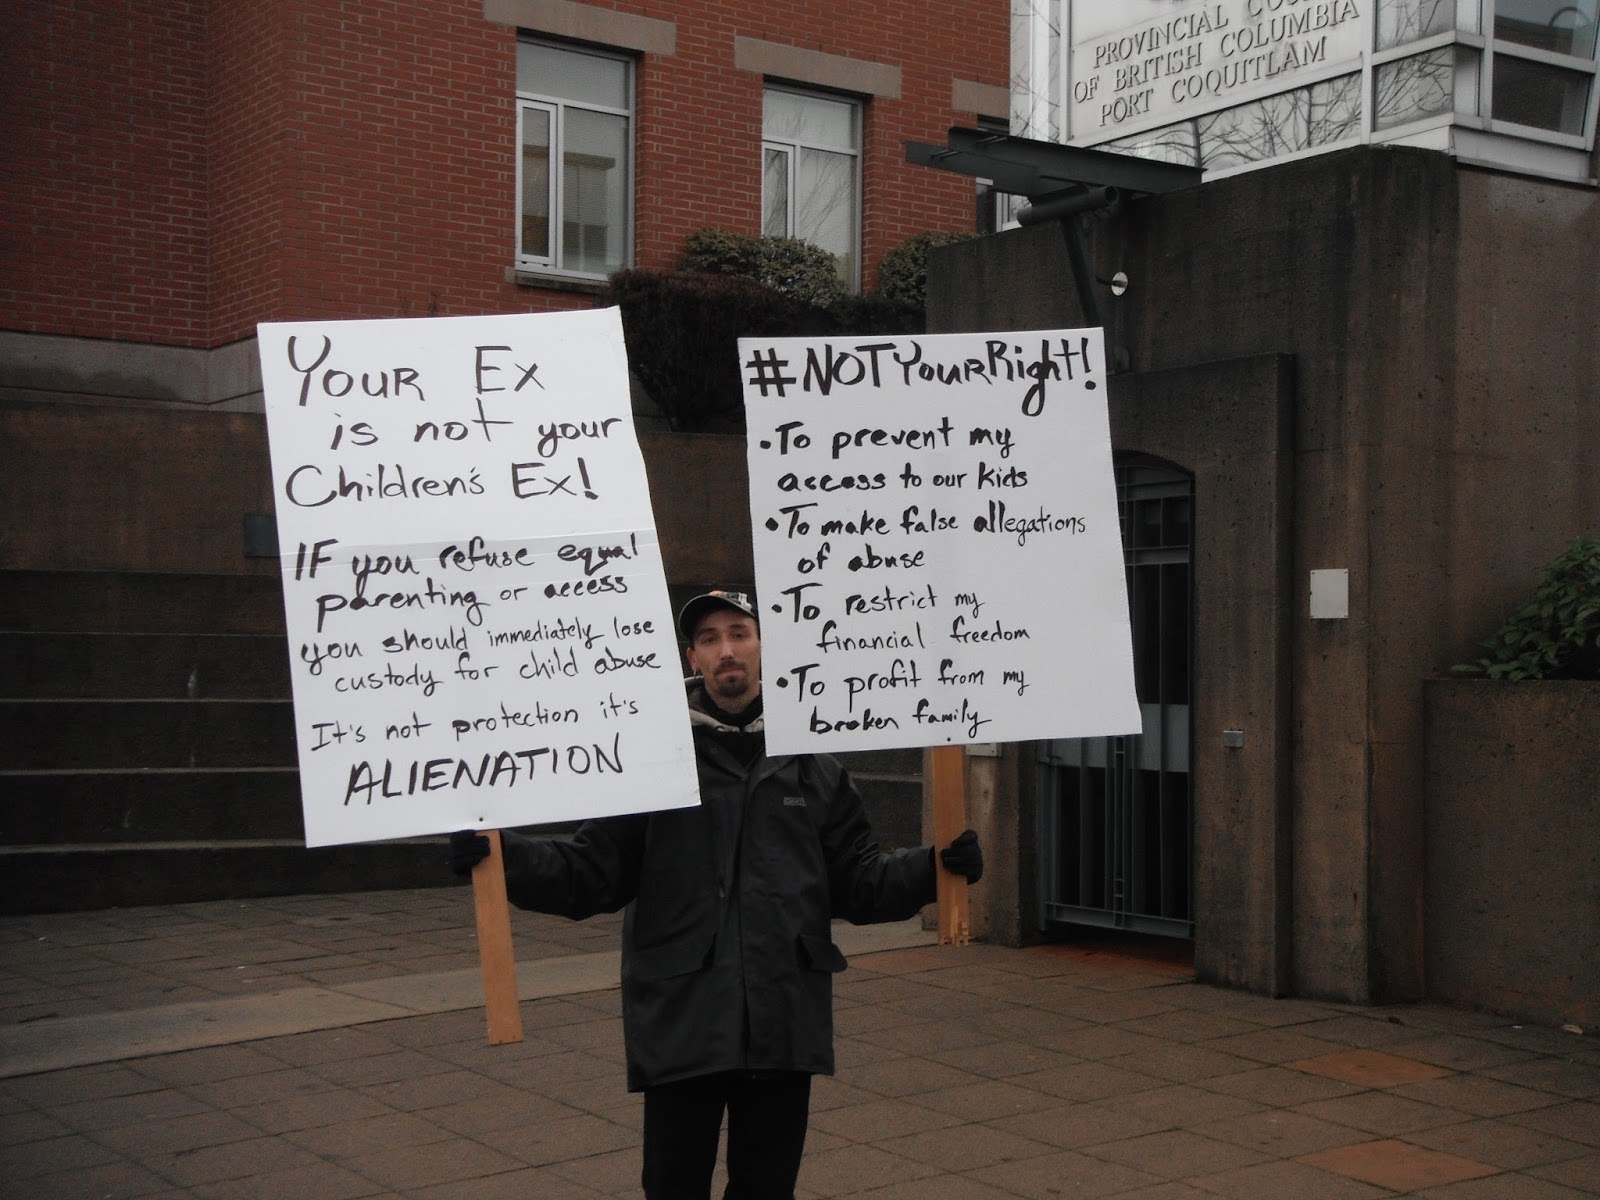 PROVINCIAL
OF BRITISH COLUMBIA
PORT COQUITLAM
Your Ex
is not your
Children's Ex!
IF you refuse equal
parenting or access
you should immediately lose
custody for child abuse
It's not protection it's
ALIENATION
#NOTYourRight!
• To prevent my
access to our kids
• To make false allegations
of abuse
• To restrict my
financial freedom
• To profit from my
broken family